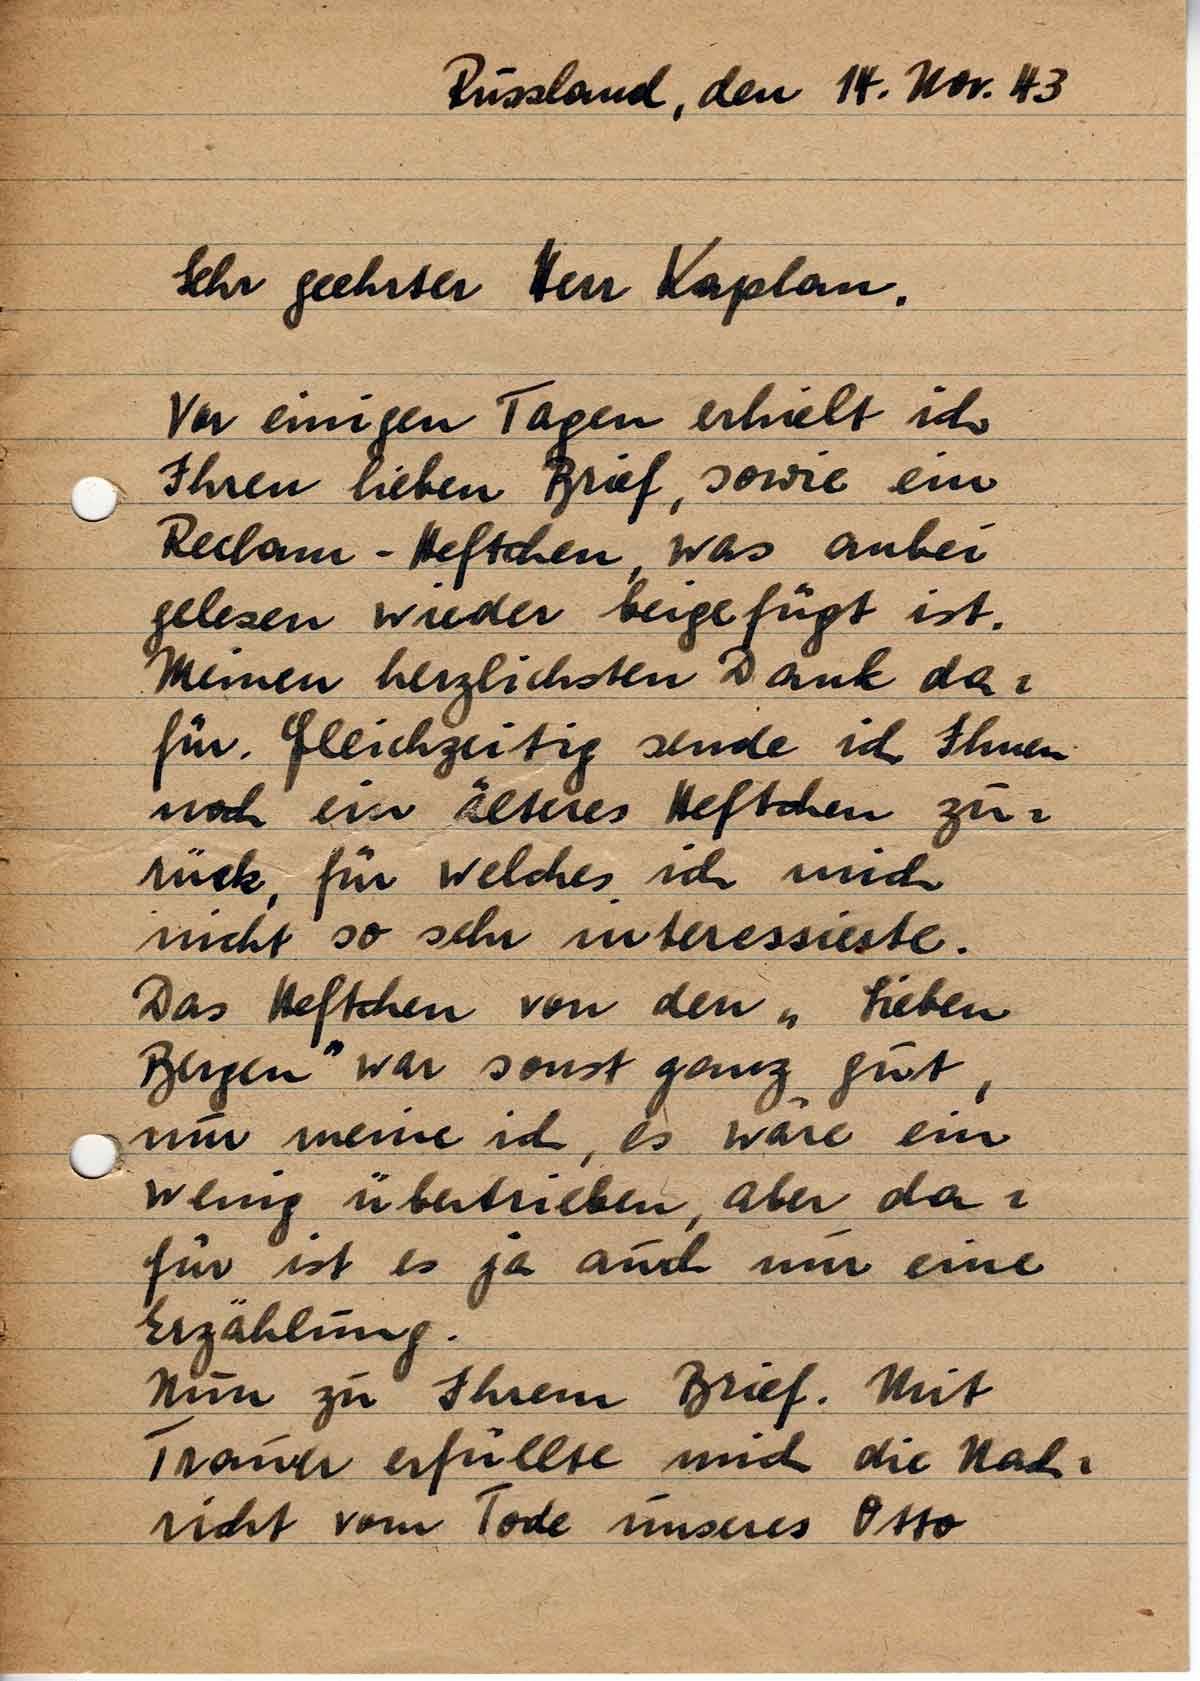 Russland, den 14. Nov. 43
Sehr geehrter Herr Kaplan.
Vor einigen Tagen erhielt ich
Ihren lieben Brief, sowie ein
Reclam - Heftchen, was anbei
gelesen wieder beigefügt ist.
Meinen herzlichsten Dank da=
für. Gleichzeitig sende ich Ihnen
noch ein älteres Heftchen zu=
rück, für welches ich mich
nicht so sehr interessierte.
Das Heftchen von den „ Sieben
Bergen" war sonst ganz gut,
nur meine ich, es wäre ein
wenig übertrieben, aber da=
für ist es ja auch nur eine
Erzählung.
Nun zu Ihrem Brief. Mit
Trauer erfüllte mich die Nach=
richt vom Tode unseres Otto